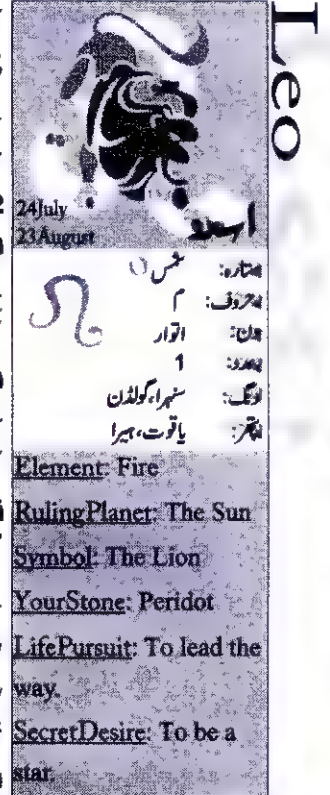 Leo
24July
23August
اسد
ستارہ: شمس
حروف: م
دن: اتوار
عدد: 1
رنگ: سنہرا، گولڈن
پتھر: یاقوت، ہیرا
Element: Fire
RulingPlanet: The Sun
Symbol: The Lion
YourStone: Peridot
LifePursuit: To lead the
way.
SecretDesire: To be a
star.